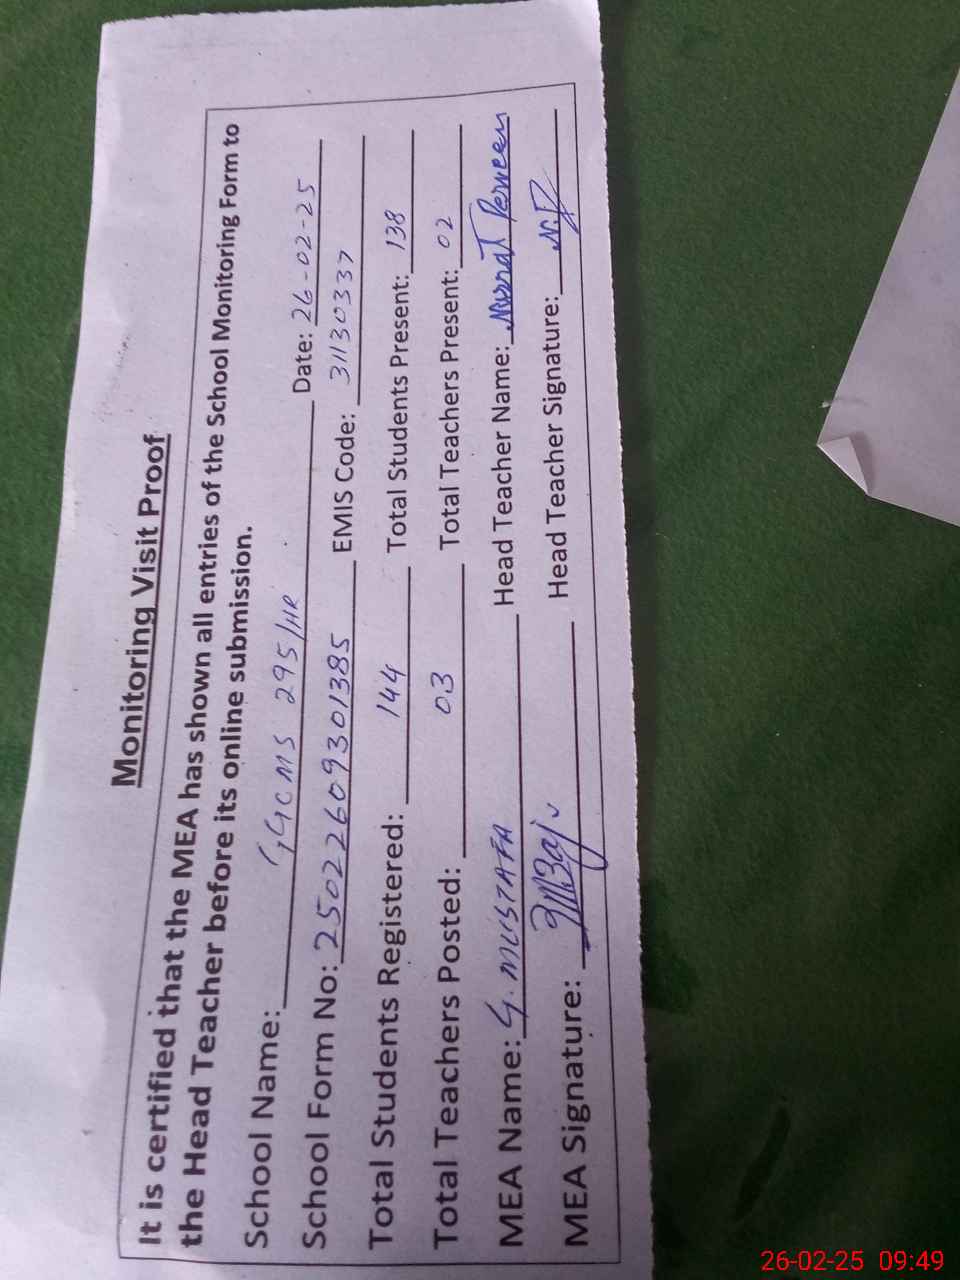 Monitoring Visit Proof
It is certified that the MEA has shown all entries of the School Monitoring Form to
the Head Teacher before its online submission.
School Name: GGCMS 295/HR Date: 26-02-25
School Form No: 25022609301385 EMIS Code: 31130337
Total Students Registered: 144 Total Students Present: 138
Total Teachers Posted: 03 Total Teachers Present: 02
MEA Name: G. MUSTAFA Head Teacher Name: Nusrat Perveen
MEA Signature: Head Teacher Signature: N.P
26-02-25 09:49